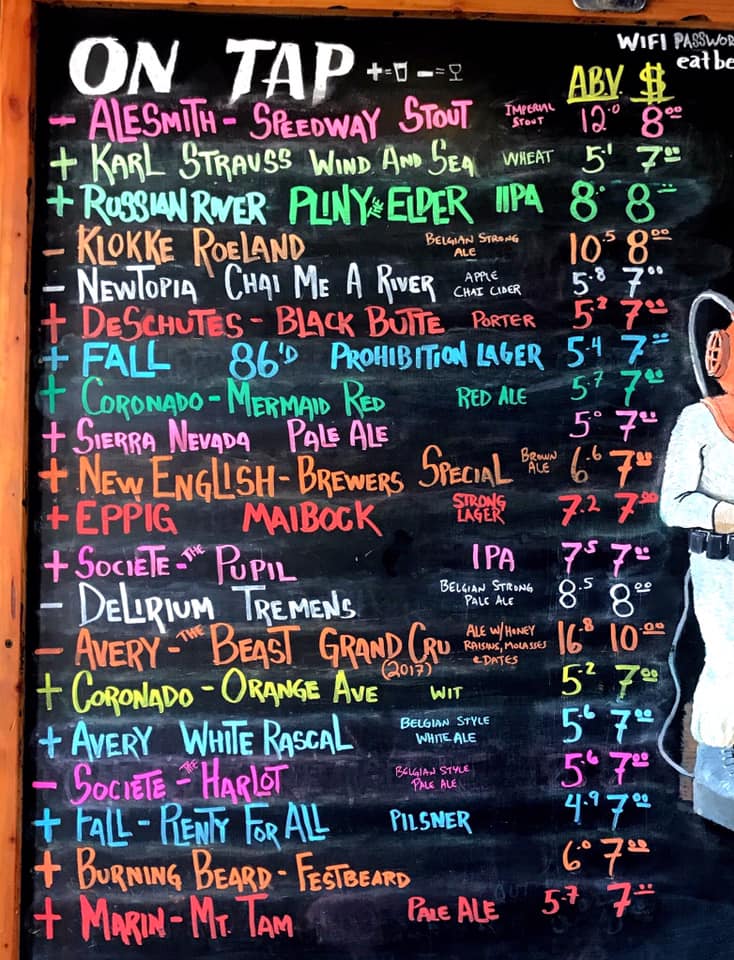 WIFI PASSWOR
eat be
ON TAP + = - =
ABV. $
- ALESMITH - SPEEDWAY STOUT IMPERIAL STOUT 12.0 8.00
+ KARL STRAUSS WIND AND SEA WHEAT 5.1 7.00
+ RUSSIAN RIVER PLINY THE ELDER IIPA 8.0 8.00
- KLOKKE ROELAND BELGIAN STRONG ALE 10.5 8.00
- NEWTOPIA CHAI ME A RIVER APPLE CHAI CIDER 5.8 7.00
+ DESCHUTES - BLACK BUTTE PORTER 5.2 7.00
+ FALL 86'D PROHIBITION LAGER 5.4 7.00
+ CORONADO - MERMAID RED RED ALE 5.7 7.00
+ SIERRA NEVADA PALE ALE 5.0 7.00
+ NEW ENGLISH - BREWERS SPECIAL BROWN ALE 6.6 7.00
+ EPPIG MAIBOCK STRONG LAGER 7.2 7.00
+ SOCIETE - THE PUPIL IPA 7.5 7.00
- DELIRIUM TREMENS BELGIAN STRONG PALE ALE 8.5 8.00
- AVERY - THE BEAST GRAND CRU (2017) ALE W/HONEY RAISINS, MOLASSES & DATES 16.8 10.00
+ CORONADO - ORANGE AVE WIT 5.2 7.00
+ AVERY WHITE RASCAL BELGIAN STYLE WHITE ALE 5.6 7.00
- SOCIETE - THE HARLOT BELGIAN STYLE PALE ALE 5.6 7.00
+ FALL - PLENTY FOR ALL PILSNER 4.9 7.00
+ BURNING BEARD - FESTBEARD 6.0 7.00
+ MARIN - MT. TAM PALE ALE 5.7 7.00